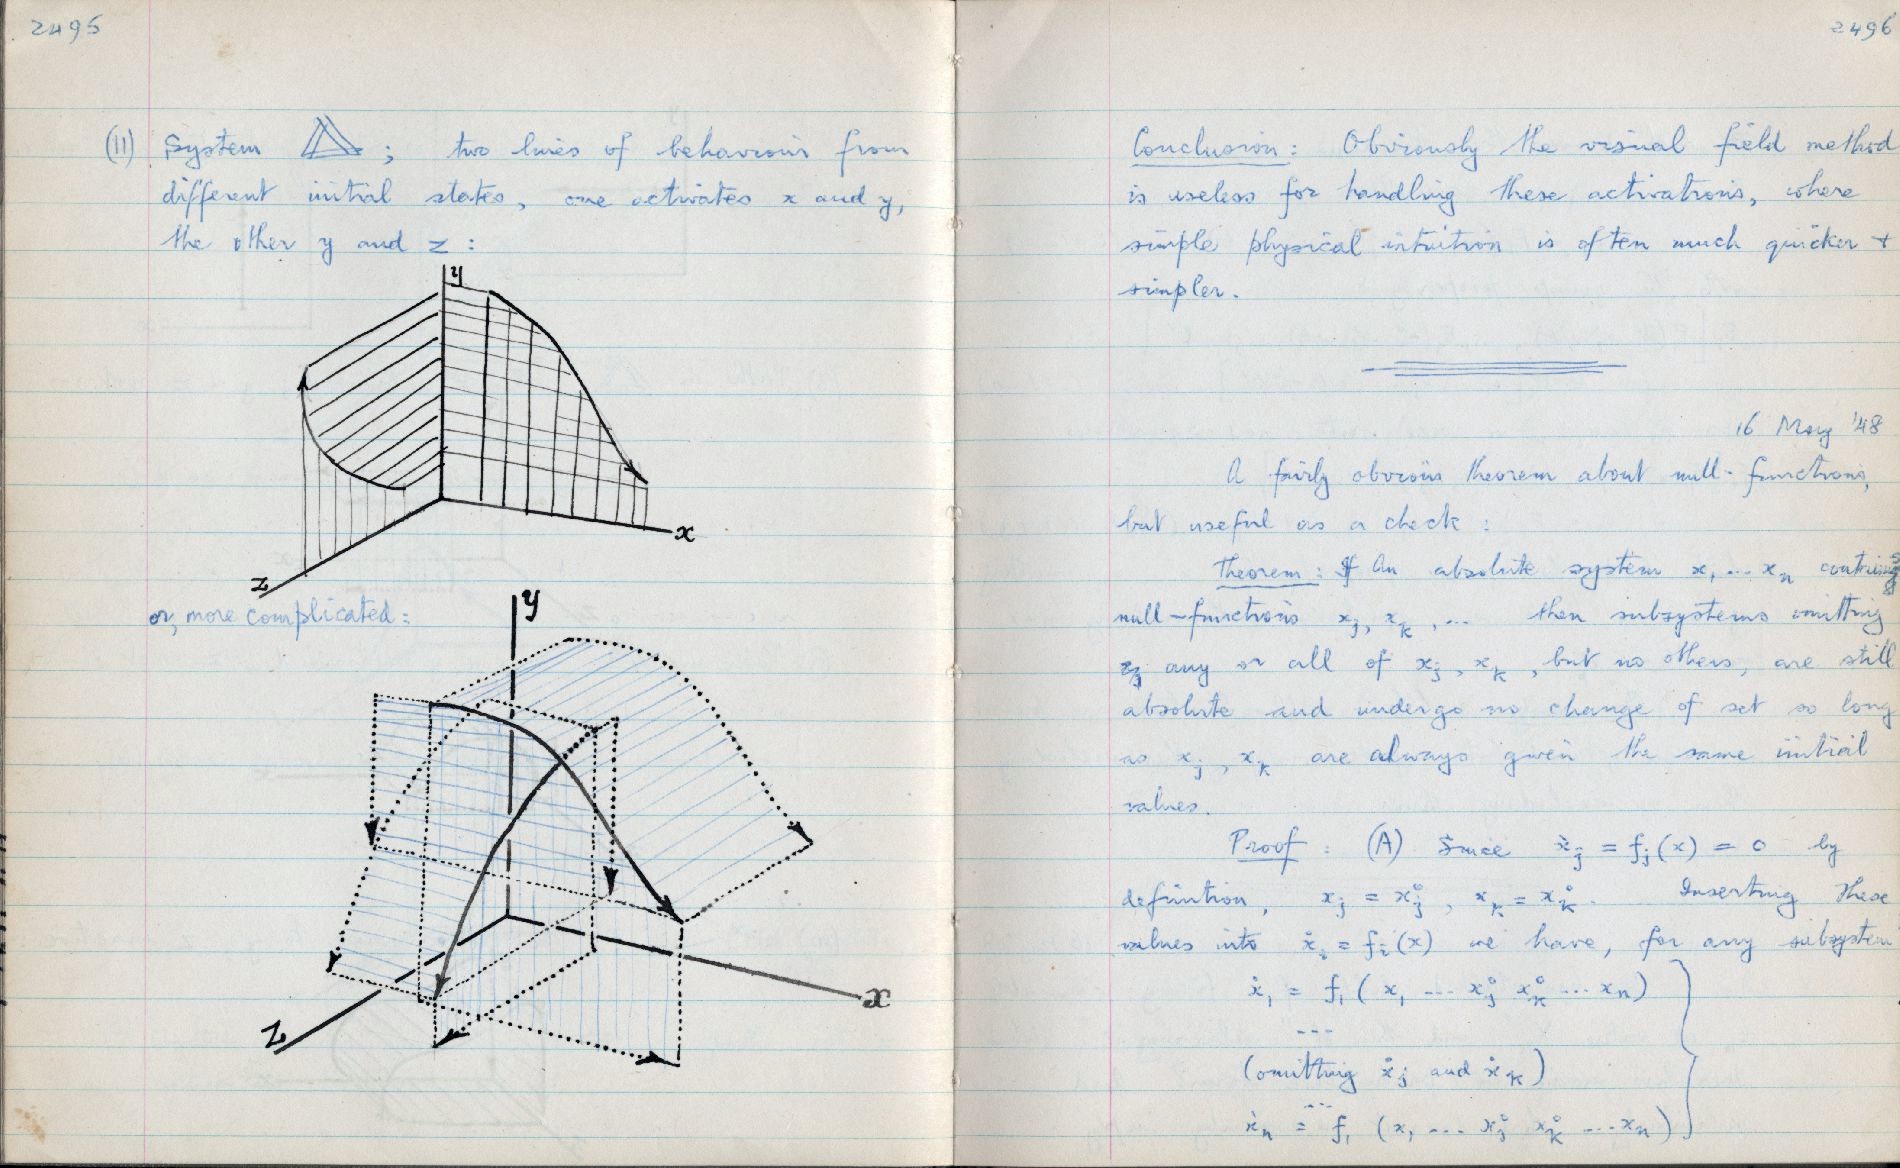 2495
(11) System ; two lines of behaviour from
different initial states, one activates x and y,
the other y and z :
y
x
z
or, more complicated:
y
x
z
2496
Conclusion: Obviously the visual field method
is useless for handling these activations, where
simple physical intuition is often much quicker +
simpler.
16 May '48
A fairly obvious theorem about null-functions,
but useful as a check :
Theorem: If An absolute system x₁ ... xₙ contains
null-functions xⱼ, xₖ, ... then subsystems omitting
any or all of xⱼ, xₖ, but no others, are still
absolute and undergo no change of set so long
as xⱼ, xₖ are always given the same initial
values.
Proof : (A) Since ẋⱼ = fⱼ(x) = 0 by
definition, xⱼ = xⱼ⁰, xₖ = xₖ⁰. Inserting these
values into ẋᵢ = fᵢ(x) we have, for any subsystem
ẋ₁ = f₁ ( x₁ ... xⱼ⁰ xₖ⁰ ... xₙ )
...
(omitting ẋⱼ and ẋₖ)
...
ẋₙ = f₁ ( x₁ ... xⱼ⁰ xₖ⁰ ... xₙ )